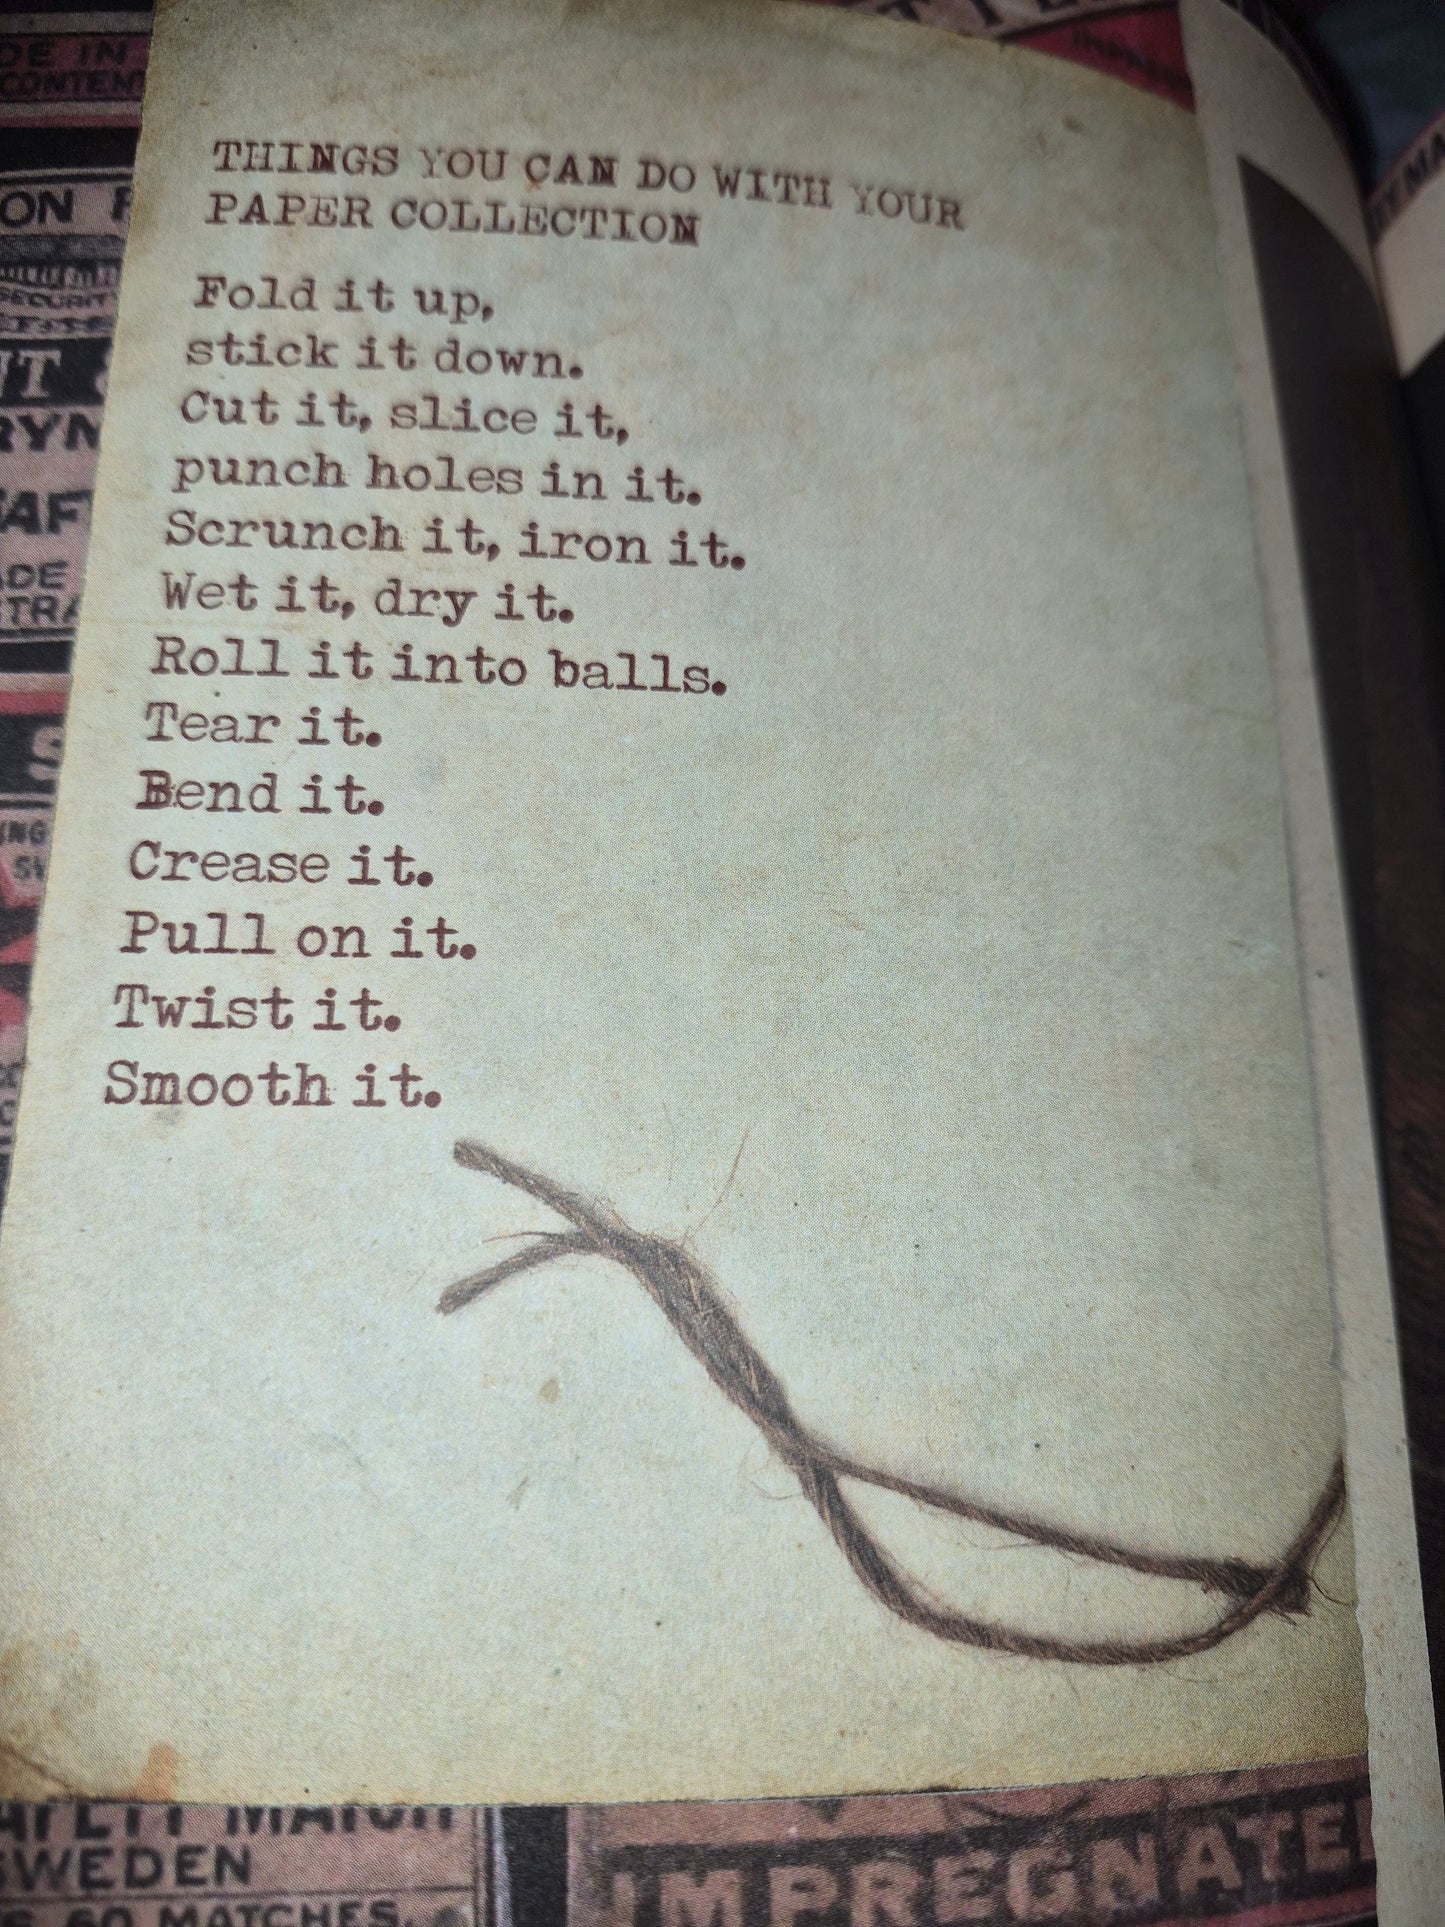 THINGS YOU CAN DO WITH YOUR
PAPER COLLECTION
Fold it up,
stick it down.
Cut it, slice it,
punch holes in it.
Scrunch it, iron it.
Wet it, dry it.
Roll it into balls.
Tear it.
Bend it.
Crease it.
Pull on it.
Twist it.
Smooth it.
DE IN
CONTENT
ON
SECURITY
MATCH
SWEDEN
60 MATCHES.
IMPREGNATE